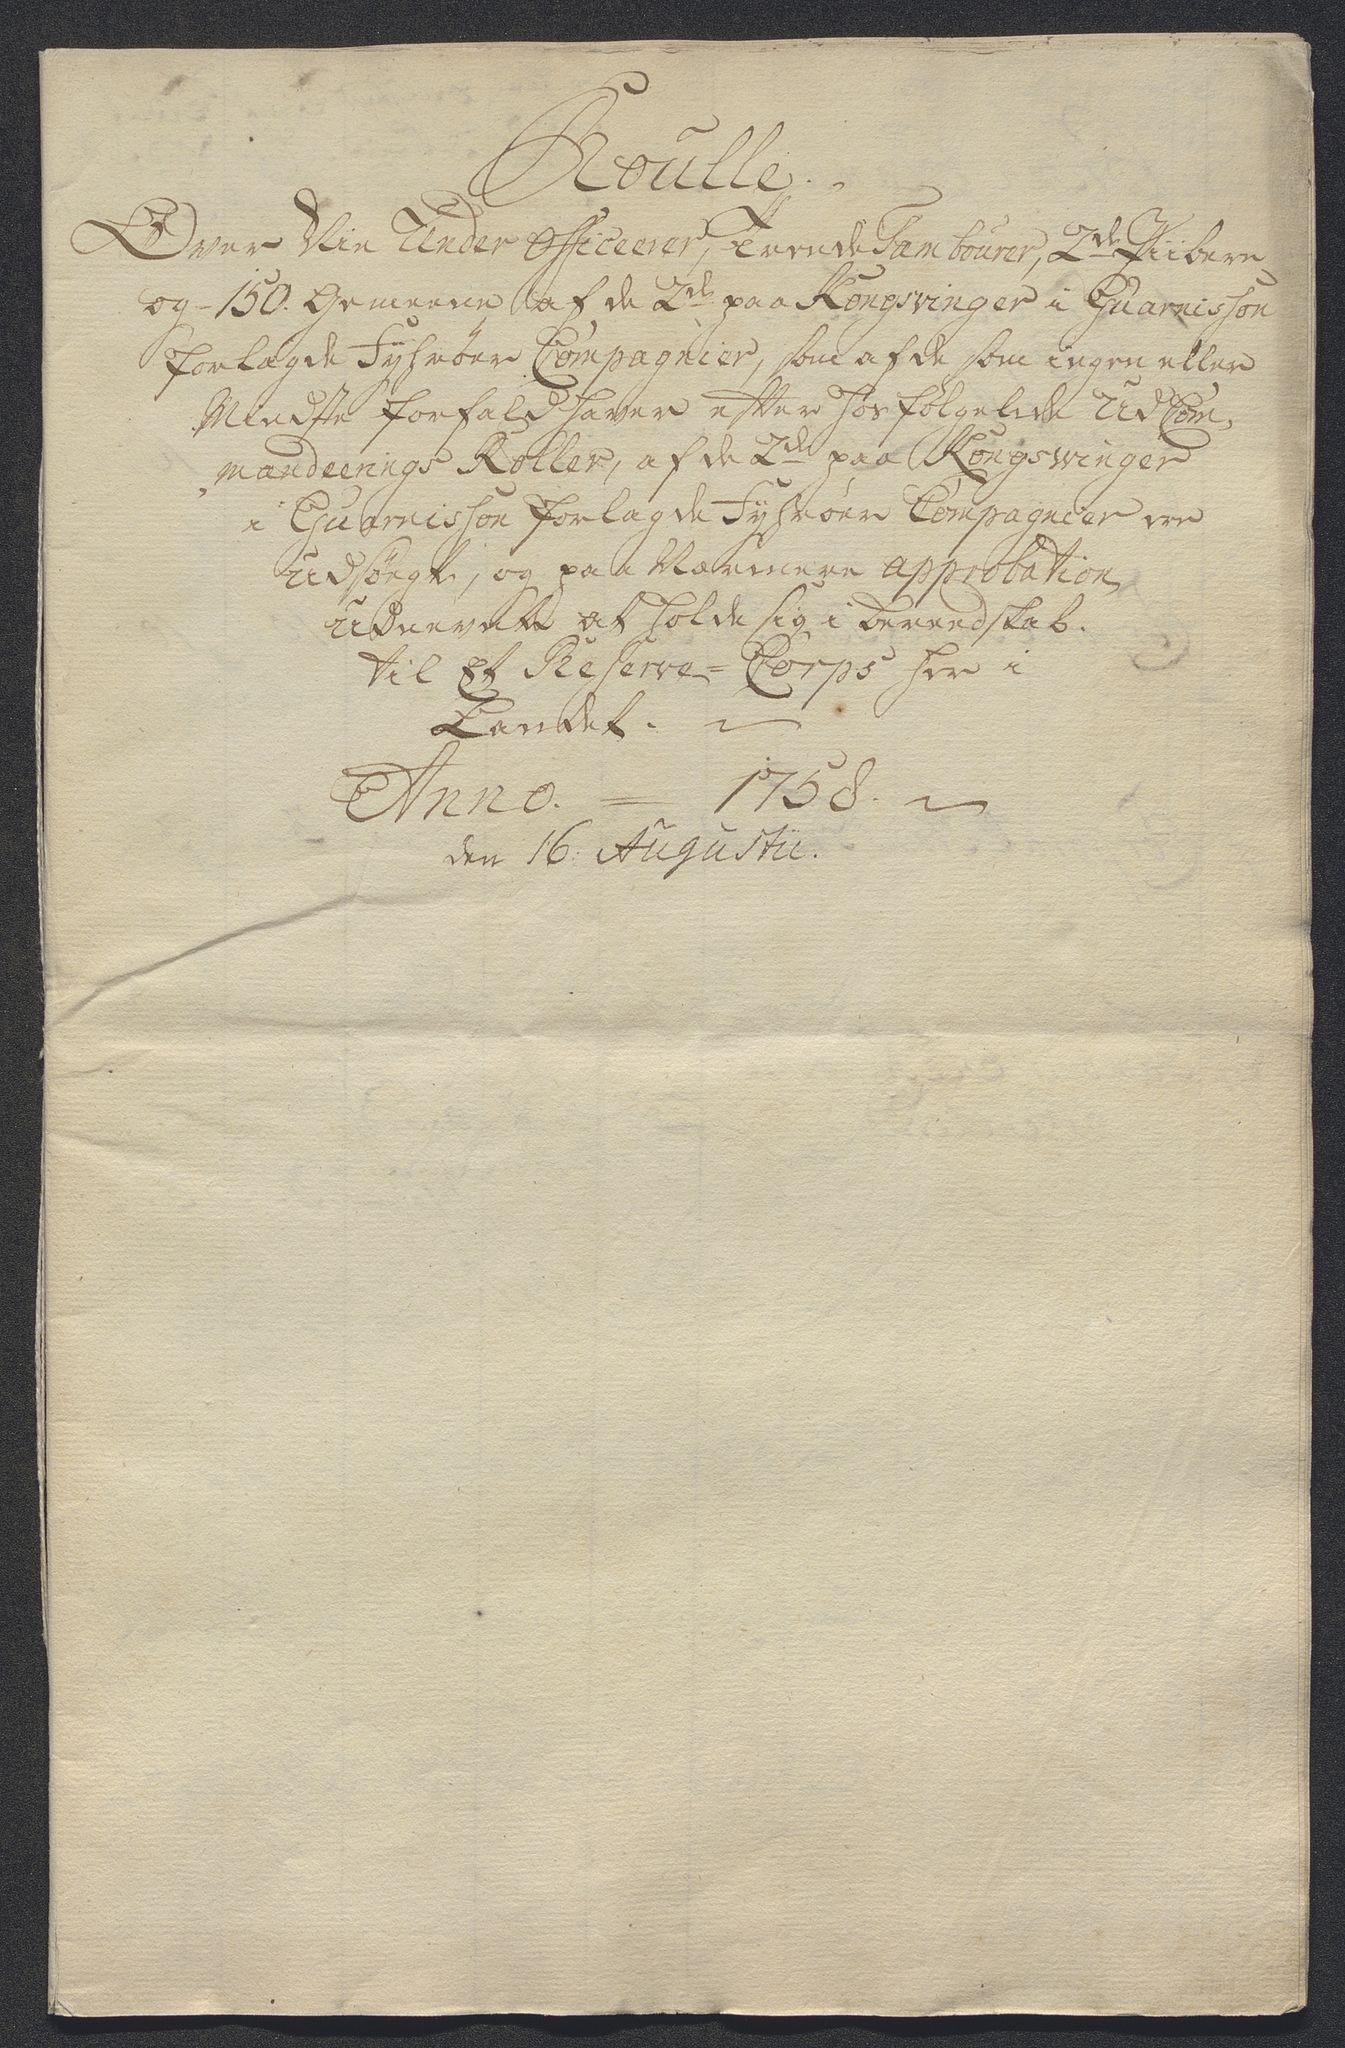 Roulle.
Over Nie Under Officeerer, Trende Tambourer, 2de Piibere
og - 150. Gemeene af de 2de paa Kongsvinger i Guarnisson
forlagde Fyhrøer Compagnier, som af de som ingen eller
Mindste forfald haver efter hosfølgende Ud Com,
mandeerings Roller, af de 2de paa Kongswinger
i Guarnisson forlagde Fyhrøer Compagnier ere
Udsøegte, og paa Nærmere approbation
Udnevnte at holde sig i bereedskab.
til Et Reserve = Corps her i
Landet.
Anno. = 1758.
den 16. Augustii.